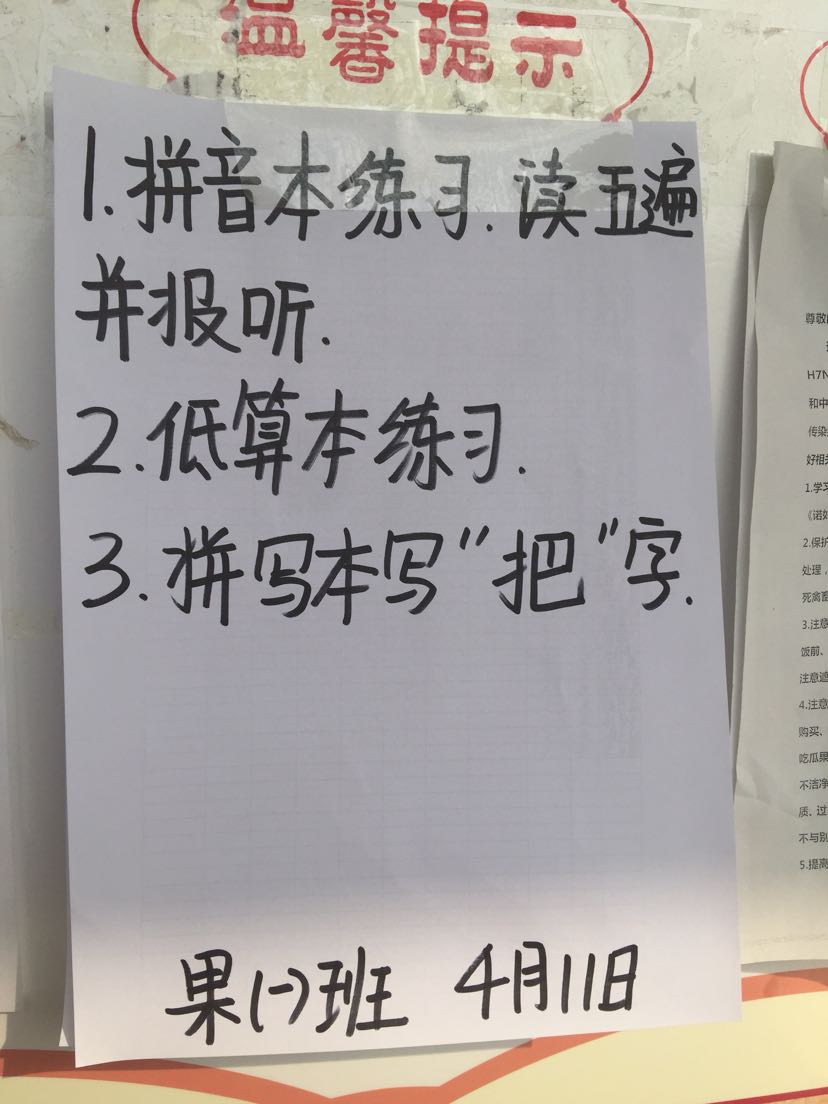 温馨提示
1.拼音本练习.读五遍
并报听.
2.低算本练习.
3.拼写本写"把"字.
果(一)班 4月11日
尊敬
H7N
和中
传染
好相关
1.学习
《诺如
2.保护
处理，
死禽畜
3.注意
饭前、
注意遮
4.注意
购买、
吃瓜果
不洁净
质、过
不与别
5.提高